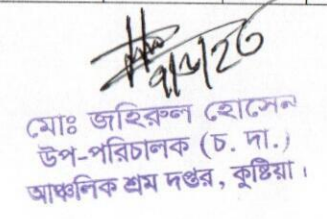 মোঃ জহিরুল হোসেন
উপ-পরিচালক (চ. দা.)
আঞ্চলিক শ্রম দপ্তর, কুষ্টিয়া।